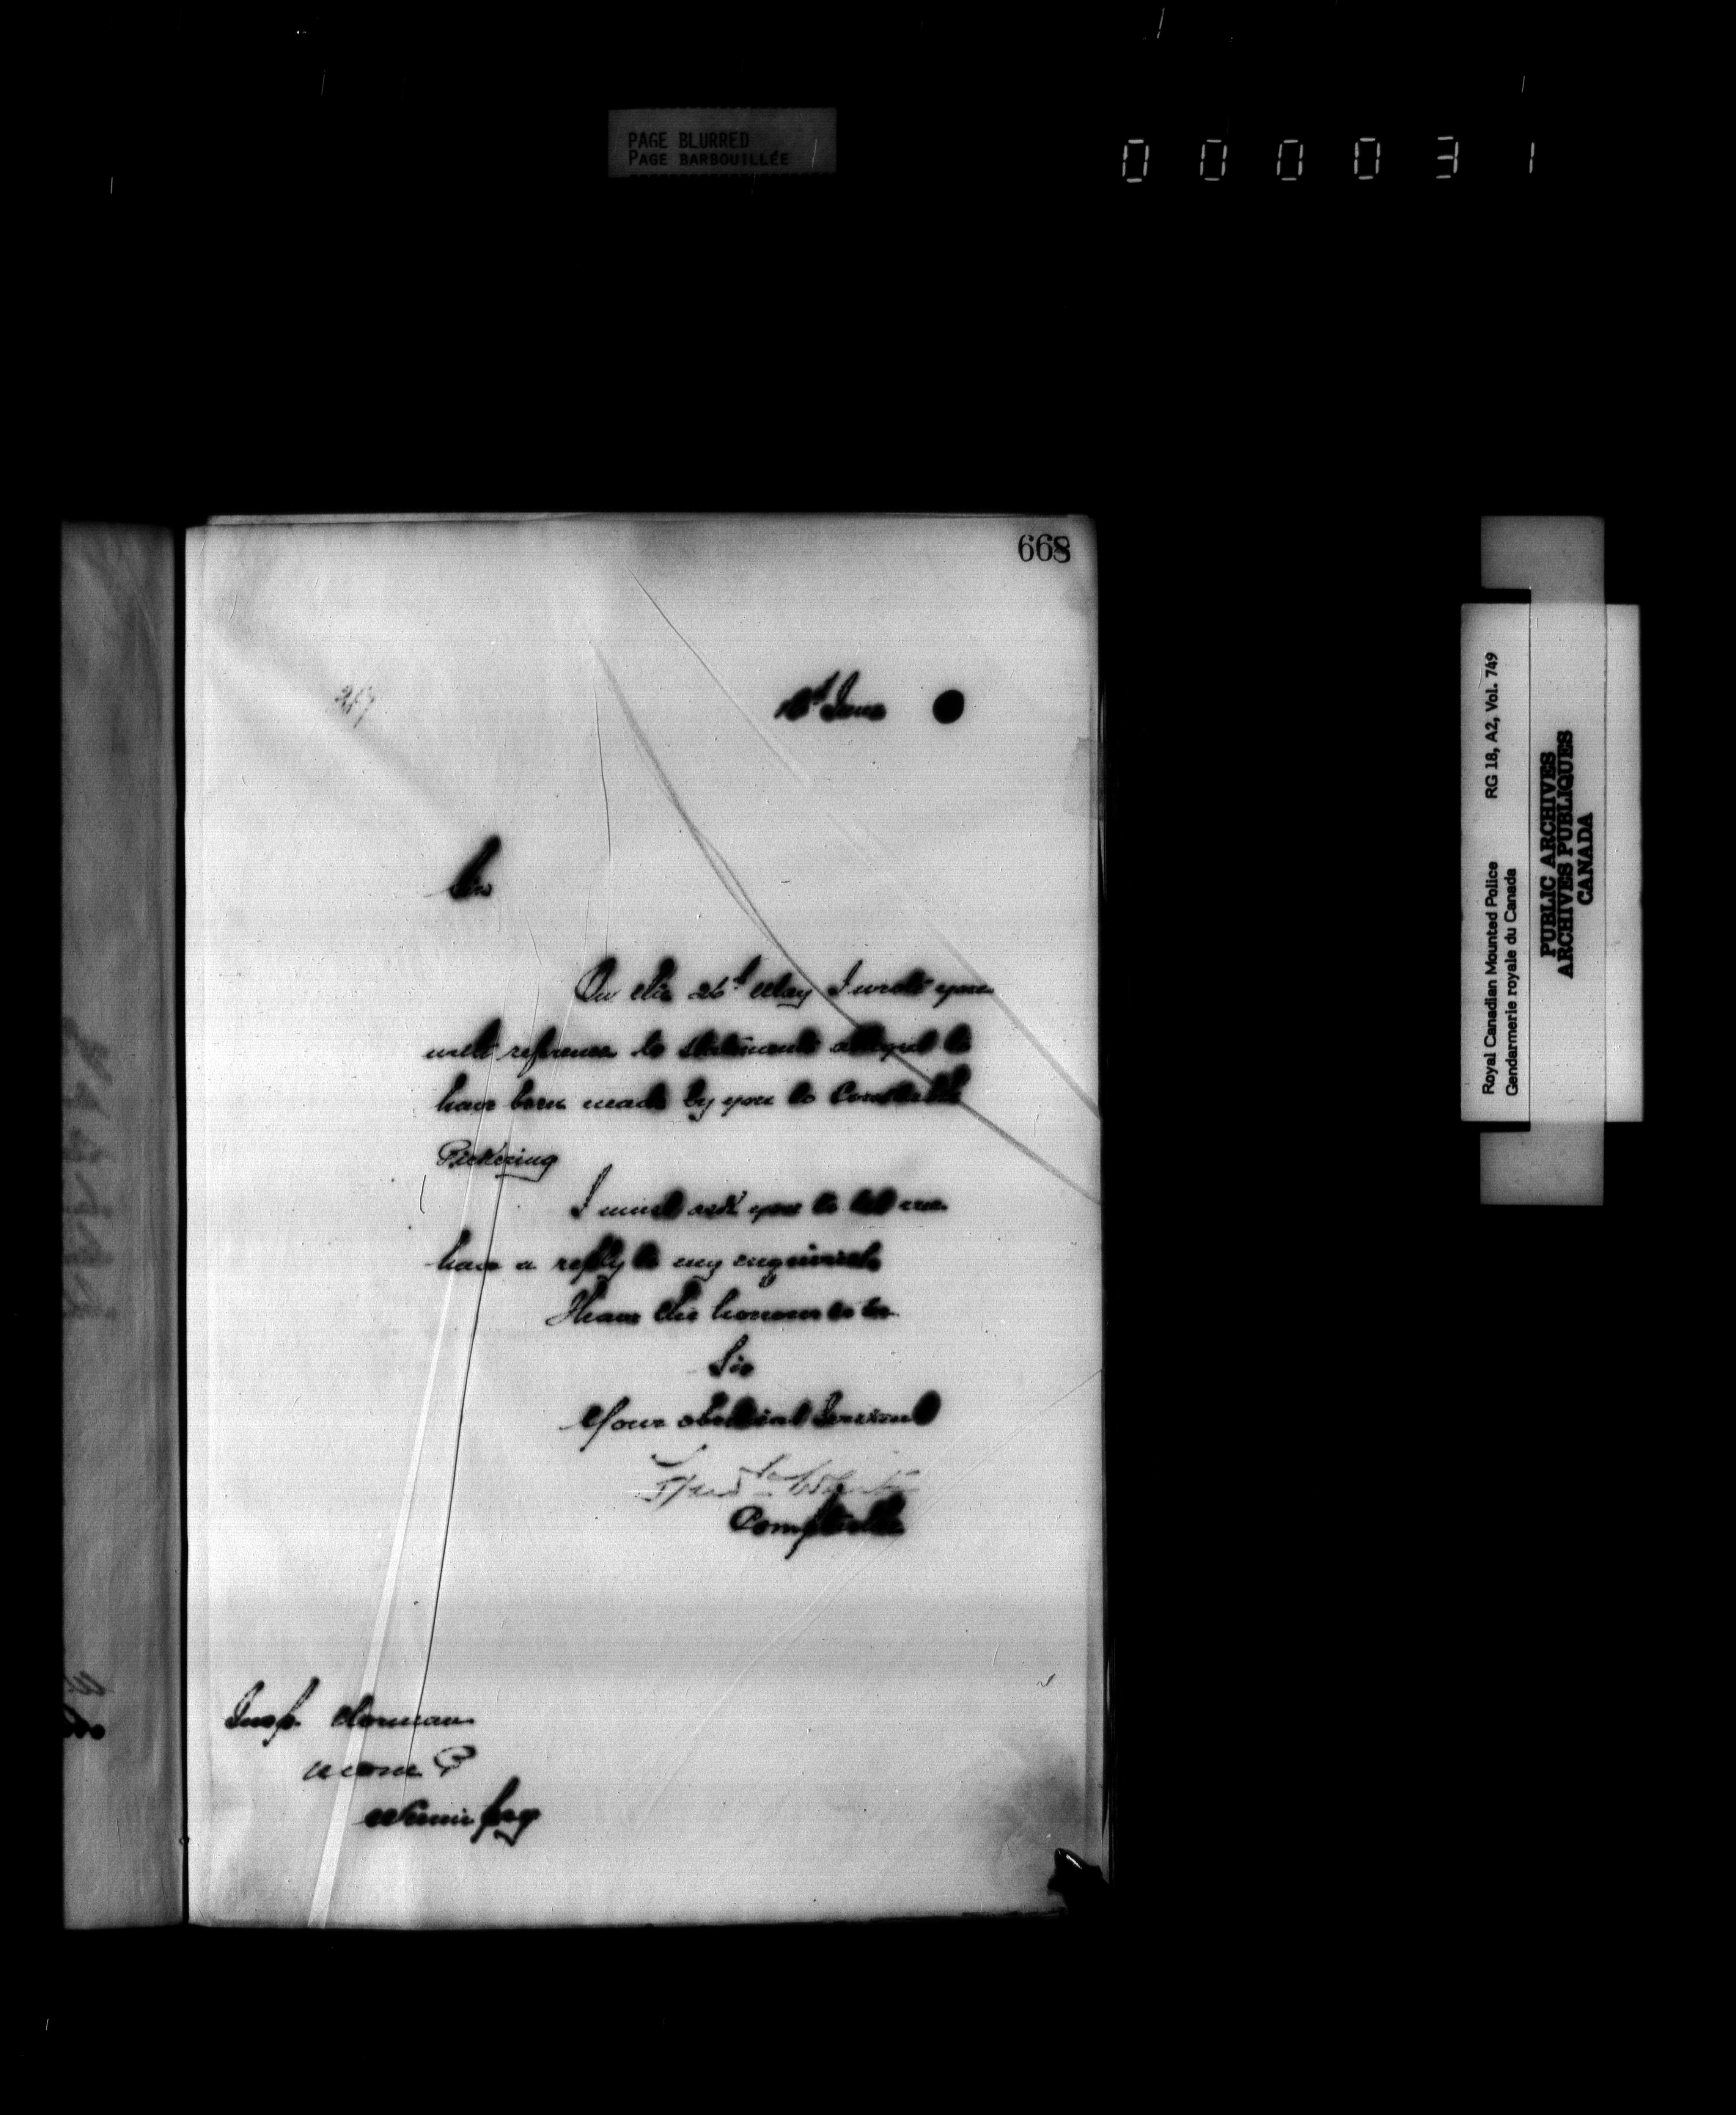 PAGE BLURRED
PAGE BARBOUILLÉE
000031
668
June
Sir
On the 26th May I wrote you
with reference to statements alleged to
have been made by you to Constable
Pickering
I must ask you to let me
have a reply to my enquiries
I have the honour to be
Sir
Your obedient Servant
Fred White
Comptroller
Insp. Norman
N W M P
Winnipeg
Royal Canadian Mounted Police RG 18, A2, Vol. 749
Gendarmerie royale du Canada
PUBLIC ARCHIVES
ARCHIVES PUBLIQUES
CANADA